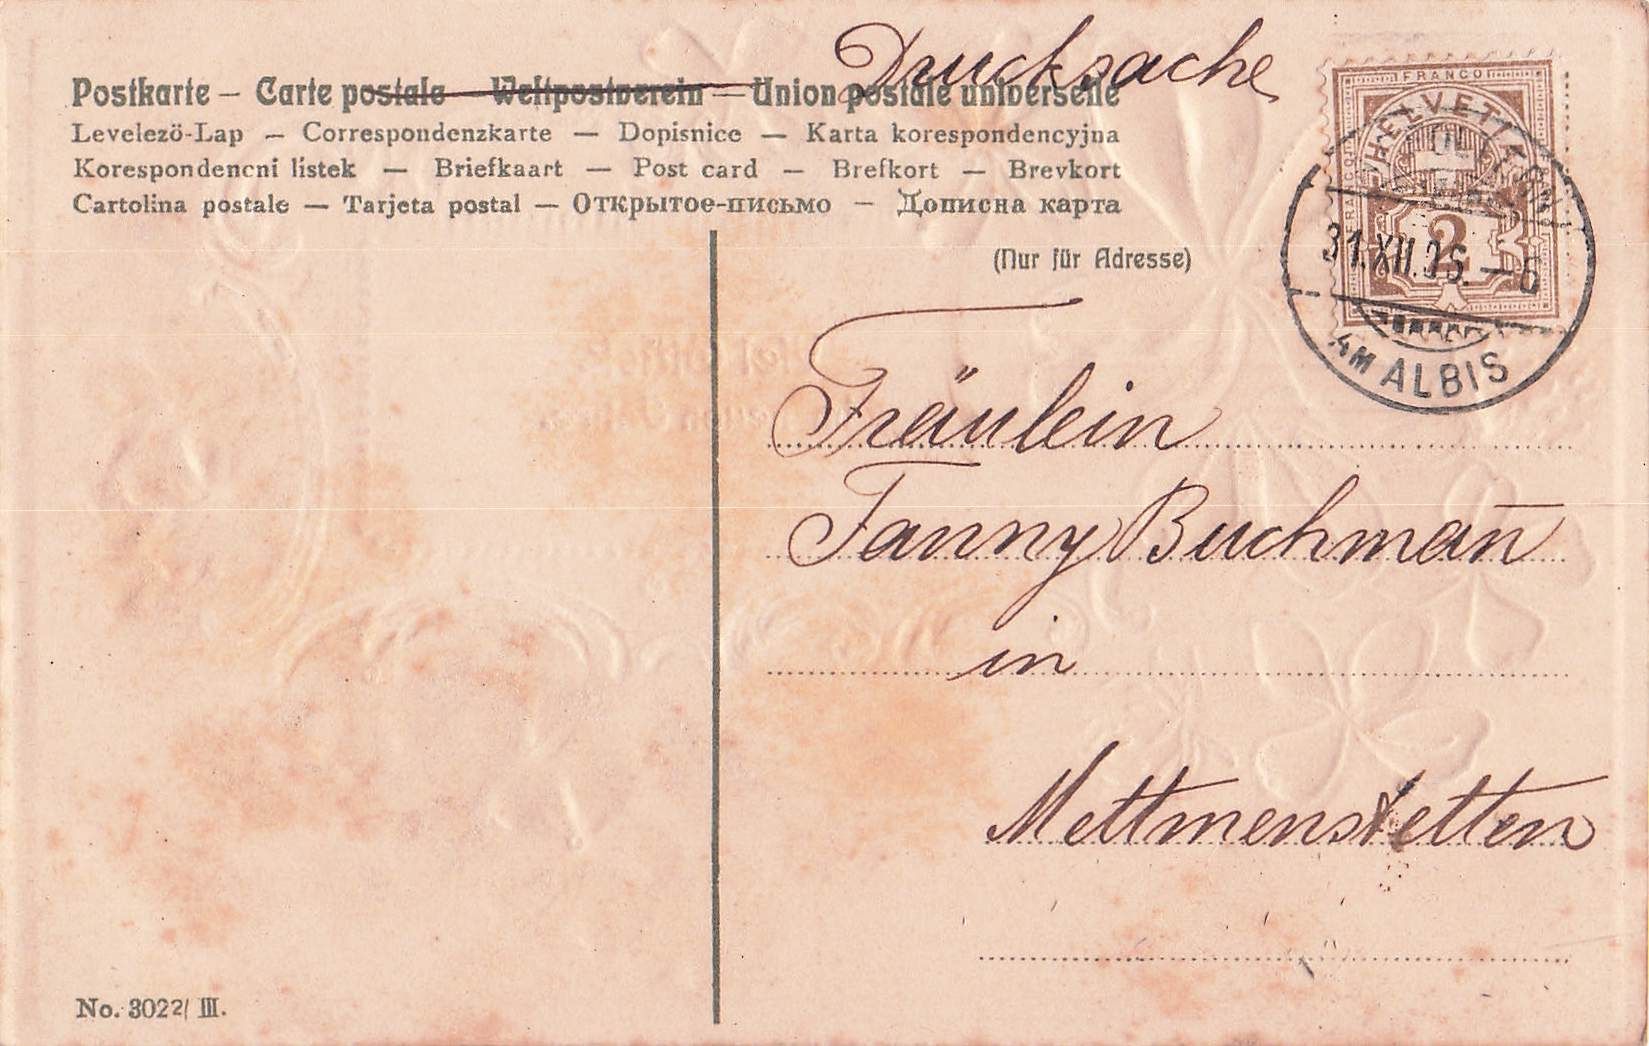 Drucksache
Postkarte – Carte postale – Weltpostverein – Union postale universelle
Levelező-Lap – Correspondenzkarte – Dopisnice – Karta korespondencyjna
Korespondencni listek – Briefkaart – Post card – Brefkort – Brevkort
Cartolina postale – Tarjeta postal – Открытое-письмо – Дописна карта
(Nur für Adresse)
FRANCO
HELVETIA
2
31.XII.05.–6
AM ALBIS
Fräulein
Fanny Buchman̄
in
Mettmenstetten
No. 3022/ III.